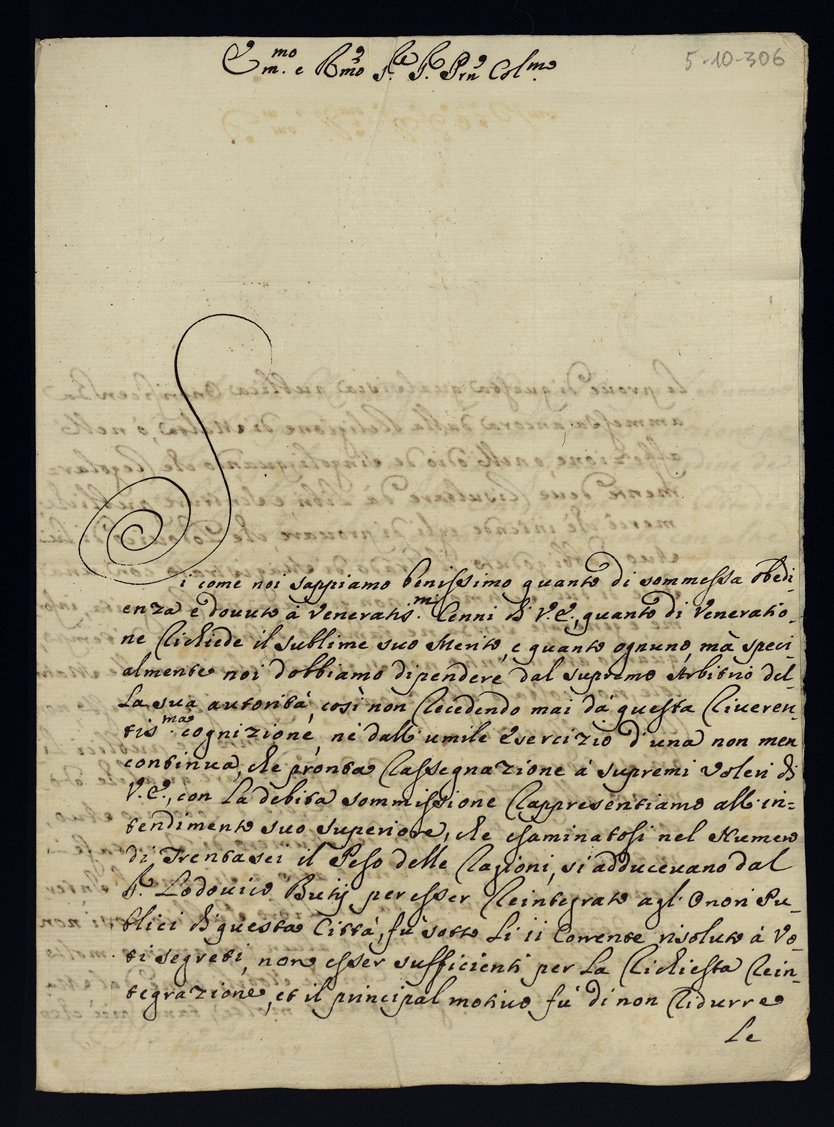 5-10-306
E.mo e R.mo S.re S.r Prn Col.mo
Si come noi sappiamo benissimo quanto di sommessa obedi-
enza è dovuto à veneratis.mi Cenni di V.E., quanto di Veneratio-
ne richiede il sublime suo Merito, e quanto ognuno, mà speci-
almente noi dobbiamo dipendere dal supremo Arbitrio del-
la sua autorità, così non recedendo mai dà questa riveren-
tis.ma cognizione, nè dall'umile esercizio d'una non men
continua, che pronta rassegnazione à supremi voleri di
V.E., con la debita sommissione rappresentiamo all'in-
tendimento suo superiore, che esaminatosi nel Numero
di Trentasei il Peso delle ragioni, si adducevano dal
S.r Lodovico Butij per esser reintegrato agl'Onori Pu-
blici di questa Città, fù sotto li 11 Corrente risoluto à Vo-
ti segreti, non esser sufficienti per la richiesta rein-
tegrazione, et il principal motivo fù di non ridurre
le